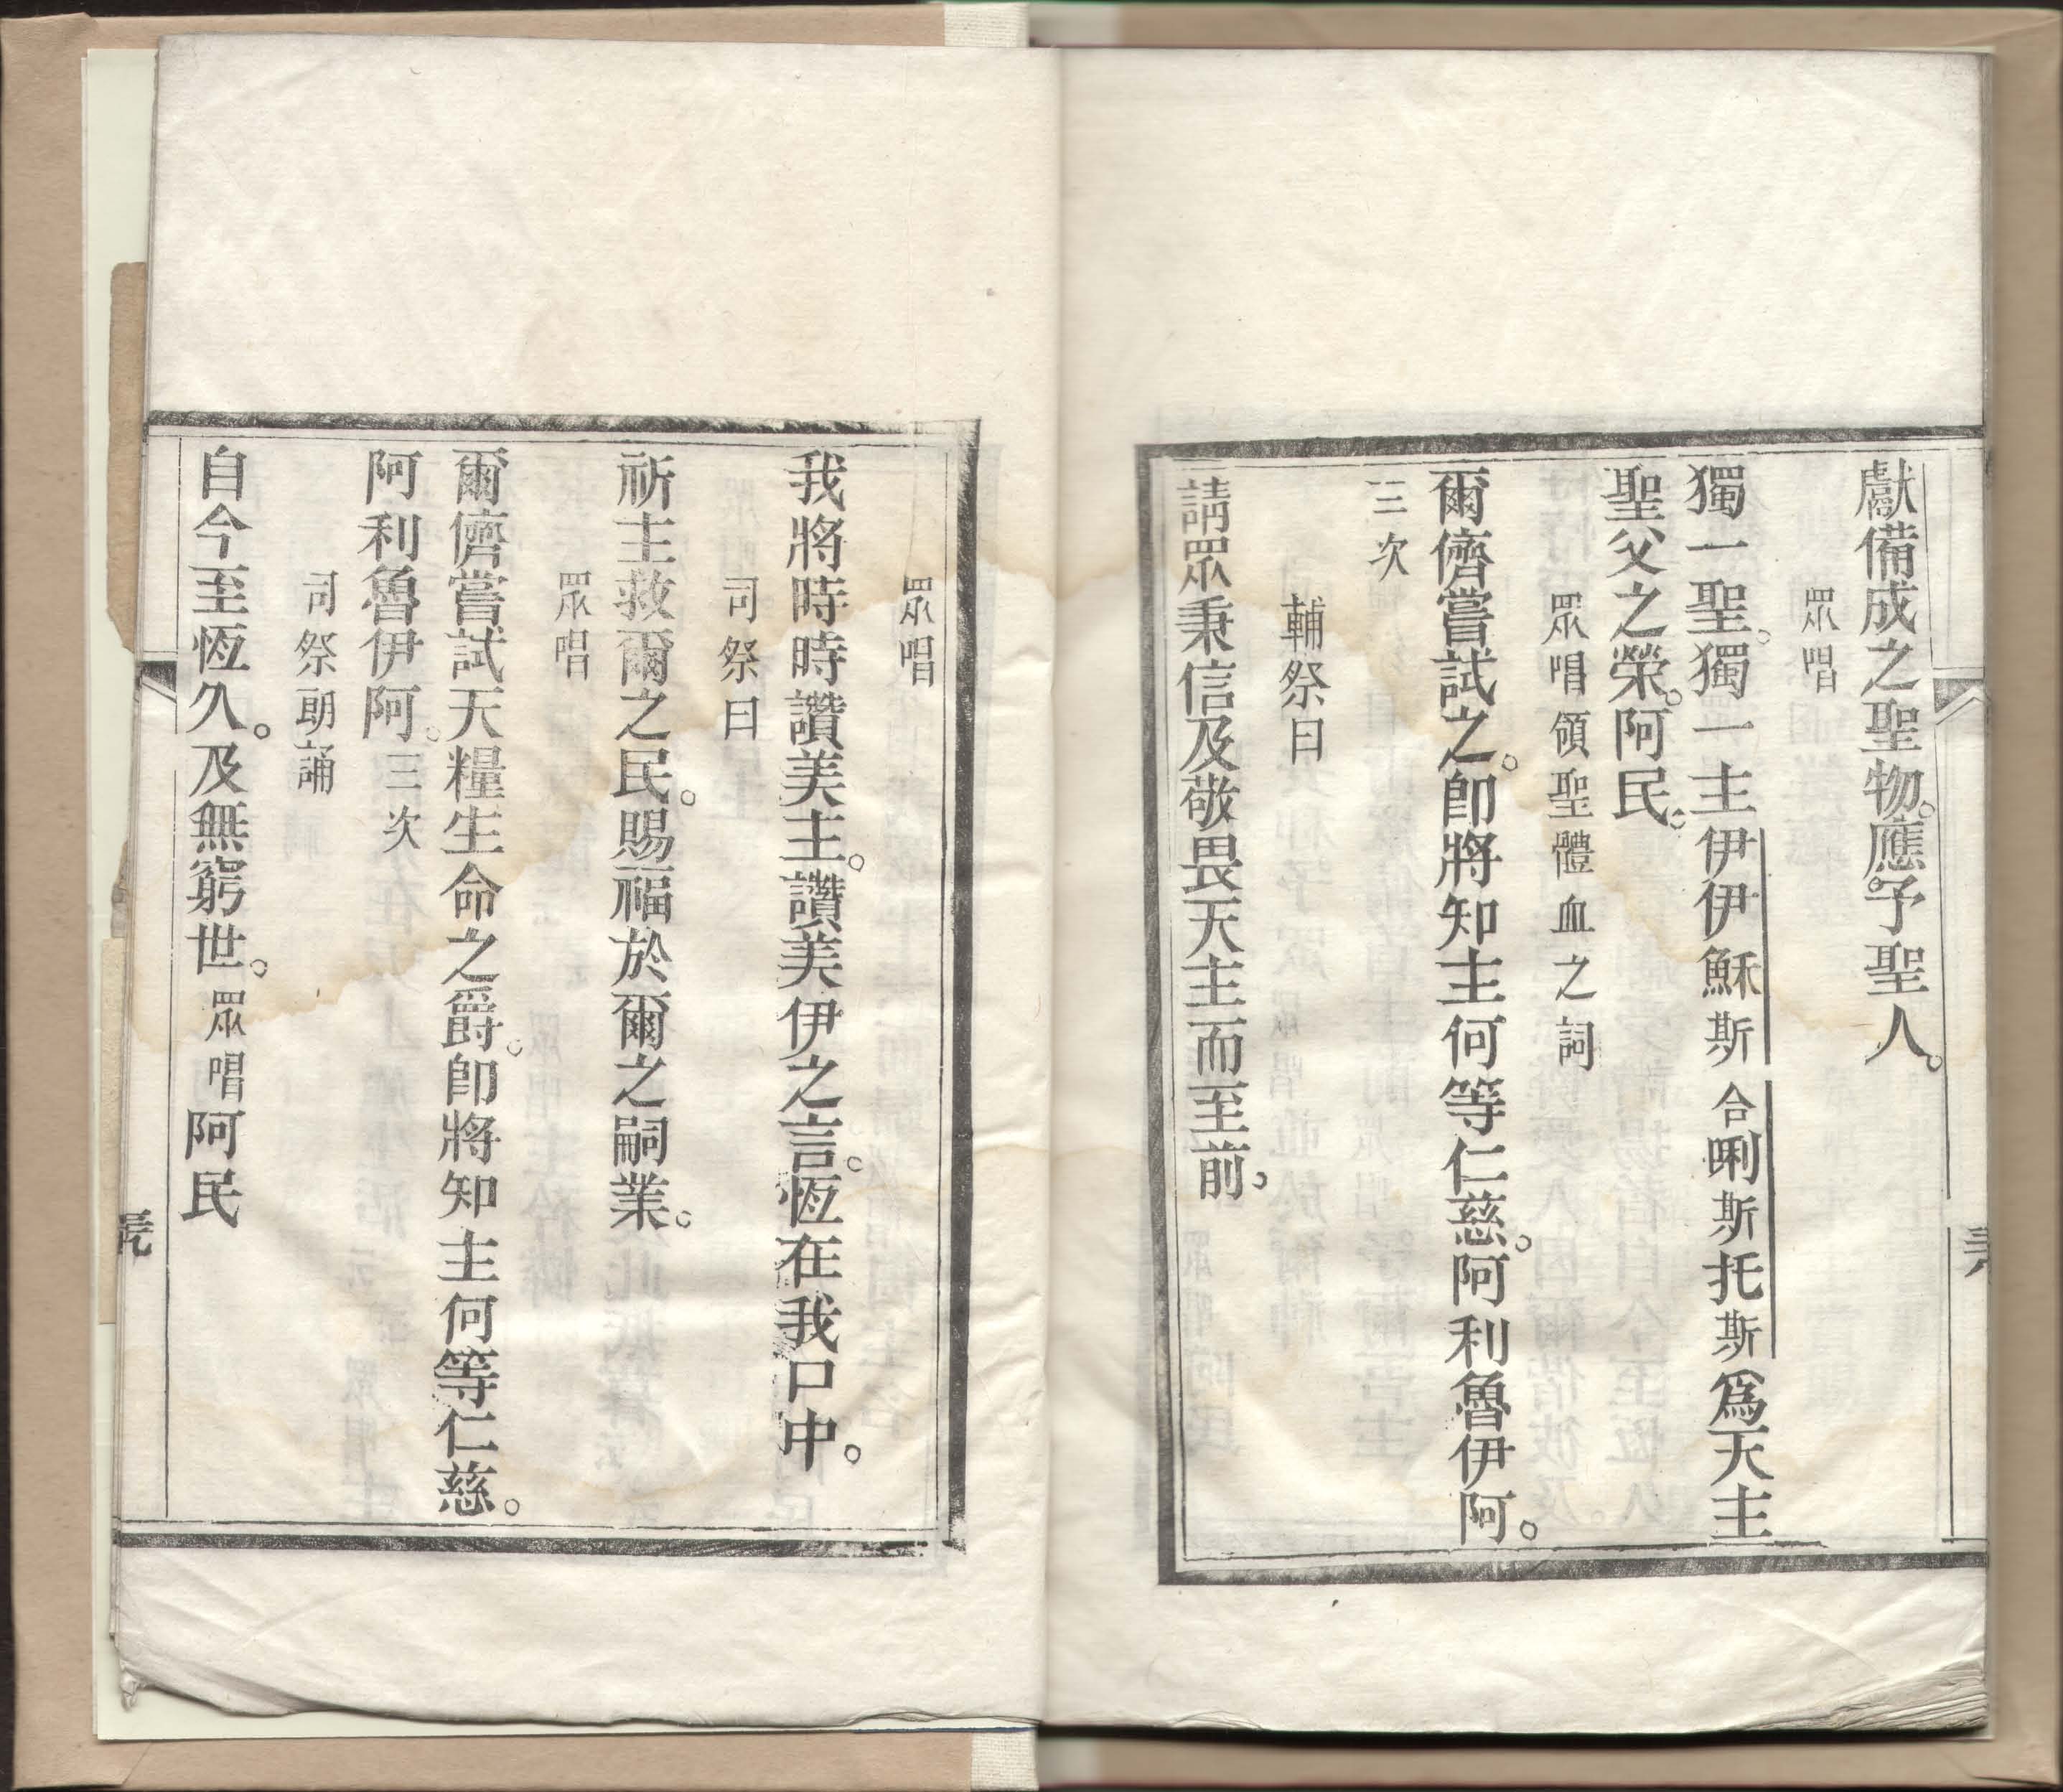 獻備成之聖物。應予聖人。
眾唱
獨一聖。獨一主伊伊穌斯合唎斯托斯為天主
聖父之榮。阿民。
眾唱領聖體血之詞
爾儕嘗試之。卽將知主何等仁慈。阿利魯伊阿。
三次
輔祭曰
請眾秉信及敬畏天主而至前。
眾唱
我將時時讚美主。讚美伊之言。恆在我口中。
司祭曰
祈主救爾之民。賜福於爾之嗣業。
眾唱
爾儕嘗試天糧生命之爵。卽將知主何等仁慈。
阿利魯伊阿。三次
司祭朗誦
自今至恆久。及無窮世。眾唱阿民